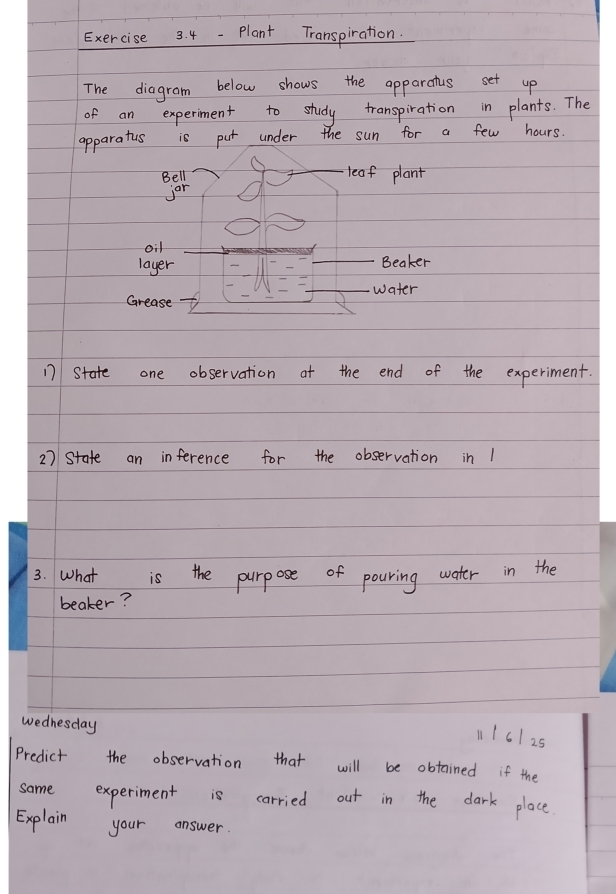 Exercise 3.4 - Plant Transpiration.
The diagram below shows the apparatus set up
of an experiment to study transpiration in plants. The
apparatus is put under the sun for a few hours.
Bell
jar
leaf plant
oil
layer
Beaker
Water
Grease
1) State one observation at the end of the experiment.
2) State an inference for the observation in 1
3. What is the purpose of pouring water in the
beaker?
Wednesday
11/6/25
Predict the observation that will be obtained if the
same experiment is carried out in the dark place.
Explain your answer.